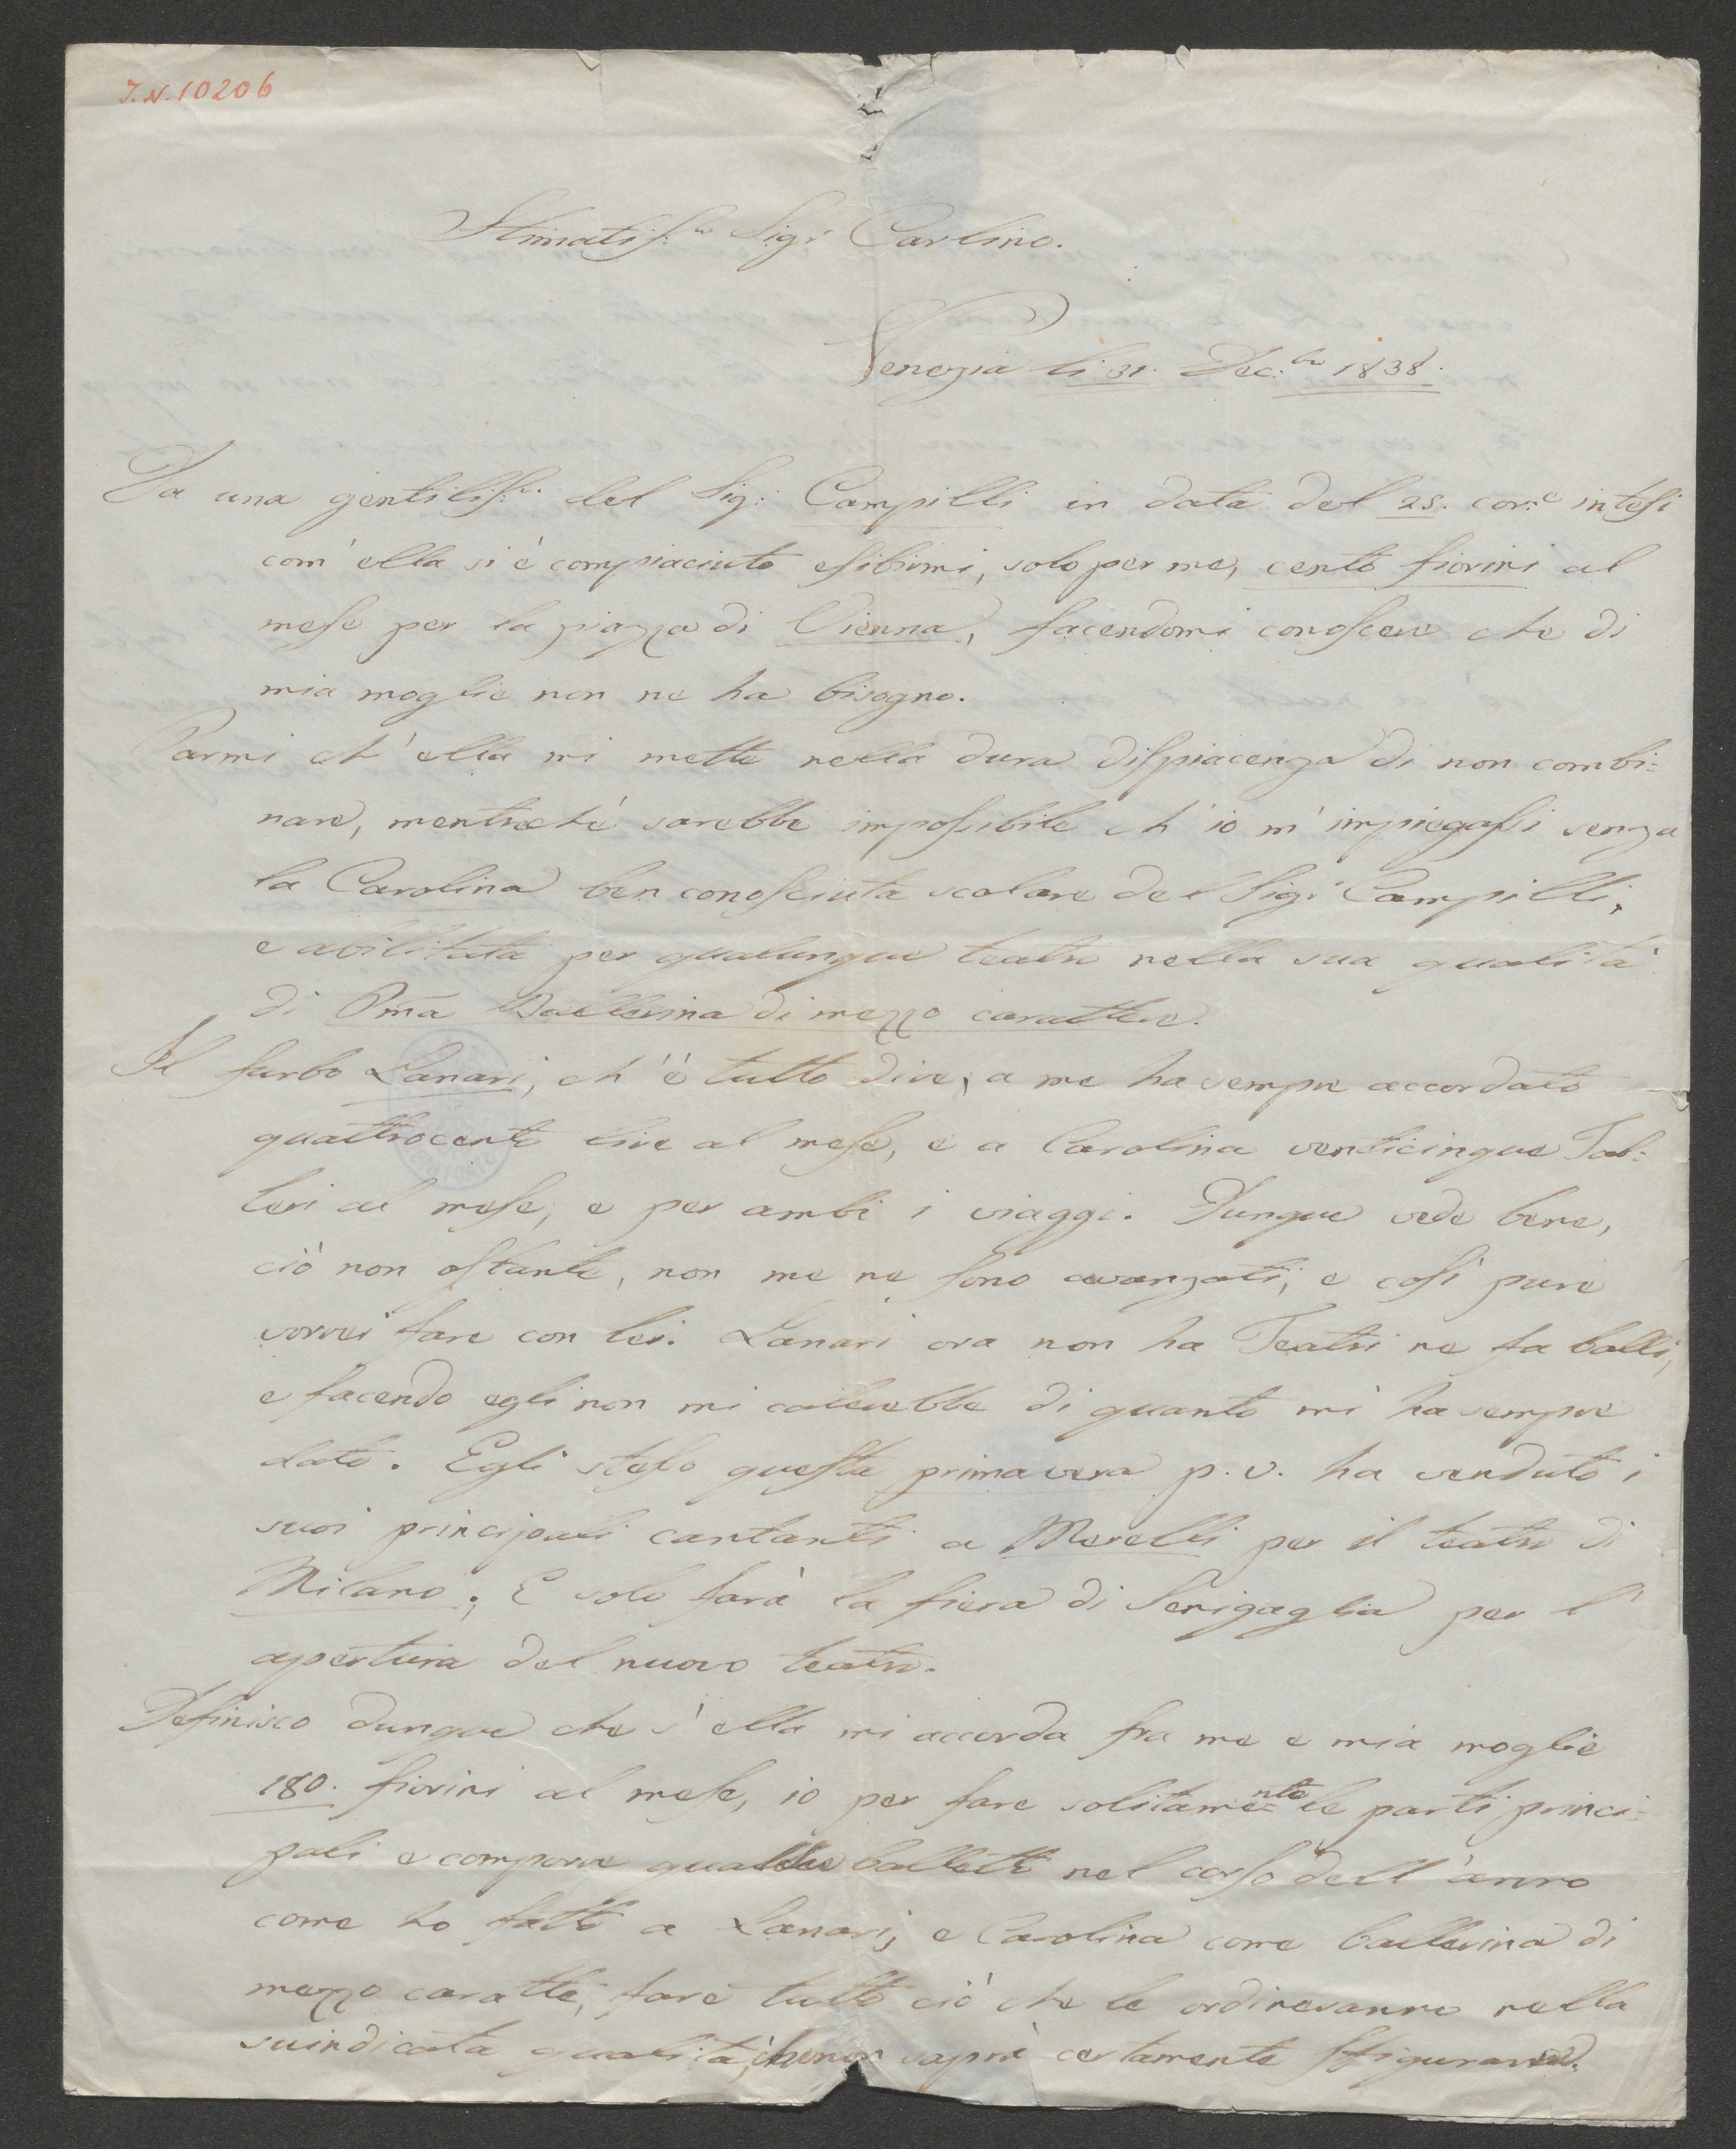 J.N. 10206
Stimatiss:mo Sigr: Carlino.
Venezia li 31. Dec:bre 1838.
Da una gentiliss:ma del Sig: Campilli in data del 25. cor:e intesi
com' ella si è compiaciuto esibirmi, solo per me, cento fiorini al
mese per la piazza di Vienna, facendomi conoscere che di
mia moglie non ne ha bisogno.
Parmi ch' ella mi mette nella dura dispiacenza di non combi=
nare, mentrechè sarebbe impossibile ch' io m' impiegassi senza
la Carolina ben conosciuta scolare del Sigr Campilli,
e abilitata per qualunque teatro nella sua qualità
di Pma Ballerina di mezzo carattere.
Il furbo Lanari, ch' è tutto dire, a me ha sempre accordato
quattrocento lire al mese, e a Carolina venticinque Tal=
leri al mese, e per ambi i viaggi. Dunque vede bene,
ciò non ostante, non me ne sono avanzati, e così pure
vorrei fare con lei. Lanari ora non ha Teatri ne fa balli,
e facendo egli non mi calerebbe di quanto mi ha sempre
dato. Egli stesso questa primavera p. v. ha venduto i
suoi principali cantanti a Merelli per il teatro di
Milano; E solo farà la fiera di Senigaglia per l'
apertura del nuovo teatro.
Definisco dunque che s' ella mi accorda fra me e mia moglie
180. fiorini al mese, io per fare solitamente le parti princi=
pali e comporre qualche balletto nel corso dell' anno
come ho fatto a Lanari, e Carolina come ballerina di
mezzo caratte, farè tutto ciò che le ordineranno nella
suindicata qualità, che non saprè certamente sfigurare.